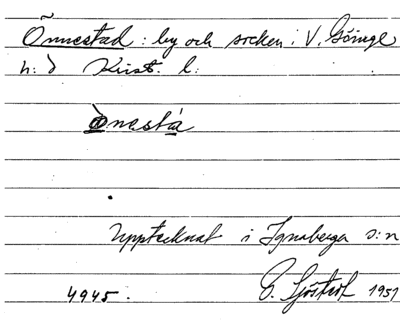 Önnestad : by och socken i V. Göinge
h:d Krist. l:
ònestá
Upptecknat i Ignaberga s:n
4945. P. Sjöstedt 1951